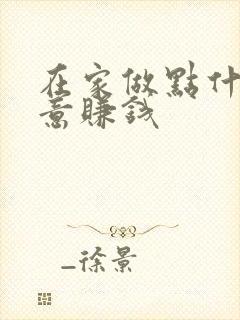 在家做點什
意賺錢
_徐景